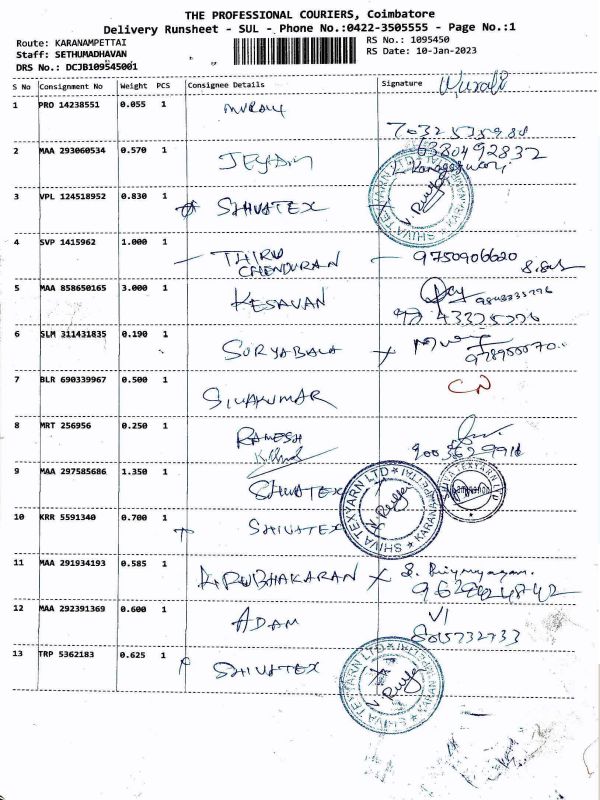 THE PROFESSIONAL COURIERS, Coimbatore
Delivery Runsheet - SUL - Phone No.:0422-3505555 - Page No.:1
Route: KARANAMPETTAI
RS No.: 1095450
Staff: SETHUMADHAVAN
RS Date: 10-Jan-2023
DRS No.: DCJB109545001
S No Consignment No Weight PCS Consignee Details Signature Murali
1 PRO 14238551 0.055 1 MURALI
2 MAA 293060534 0.570 1 JEYAM
6380492832
3 VPL 124518952 0.830 1 SHIVATEX
SHIVA TEXYARN LTD
4 SVP 1415962 1.000 1 THIRU CHENDURAN 9750906620
5 MAA 858650165 3.000 1 KESAVAN
6 SLM 311431835 0.190 1 SURYABALA
7 BLR 690339967 0.500 1 SIVAKUMAR
8 MRT 256956 0.250 1 RAMESH
9 MAA 297585686 1.350 1 SHIVATEX
SHIVA TEXYARN LTD KARANAMPETTAI
10 KRR 5591340 0.700 1 SHIVATEX
11 MAA 291934193 0.585 1 KIRUBHAKARAN
12 MAA 292391369 0.600 1 ADAM
8015732733
13 TRP 5362183 0.625 1 SHIVATEX
SHIVA TEXYARN LTD